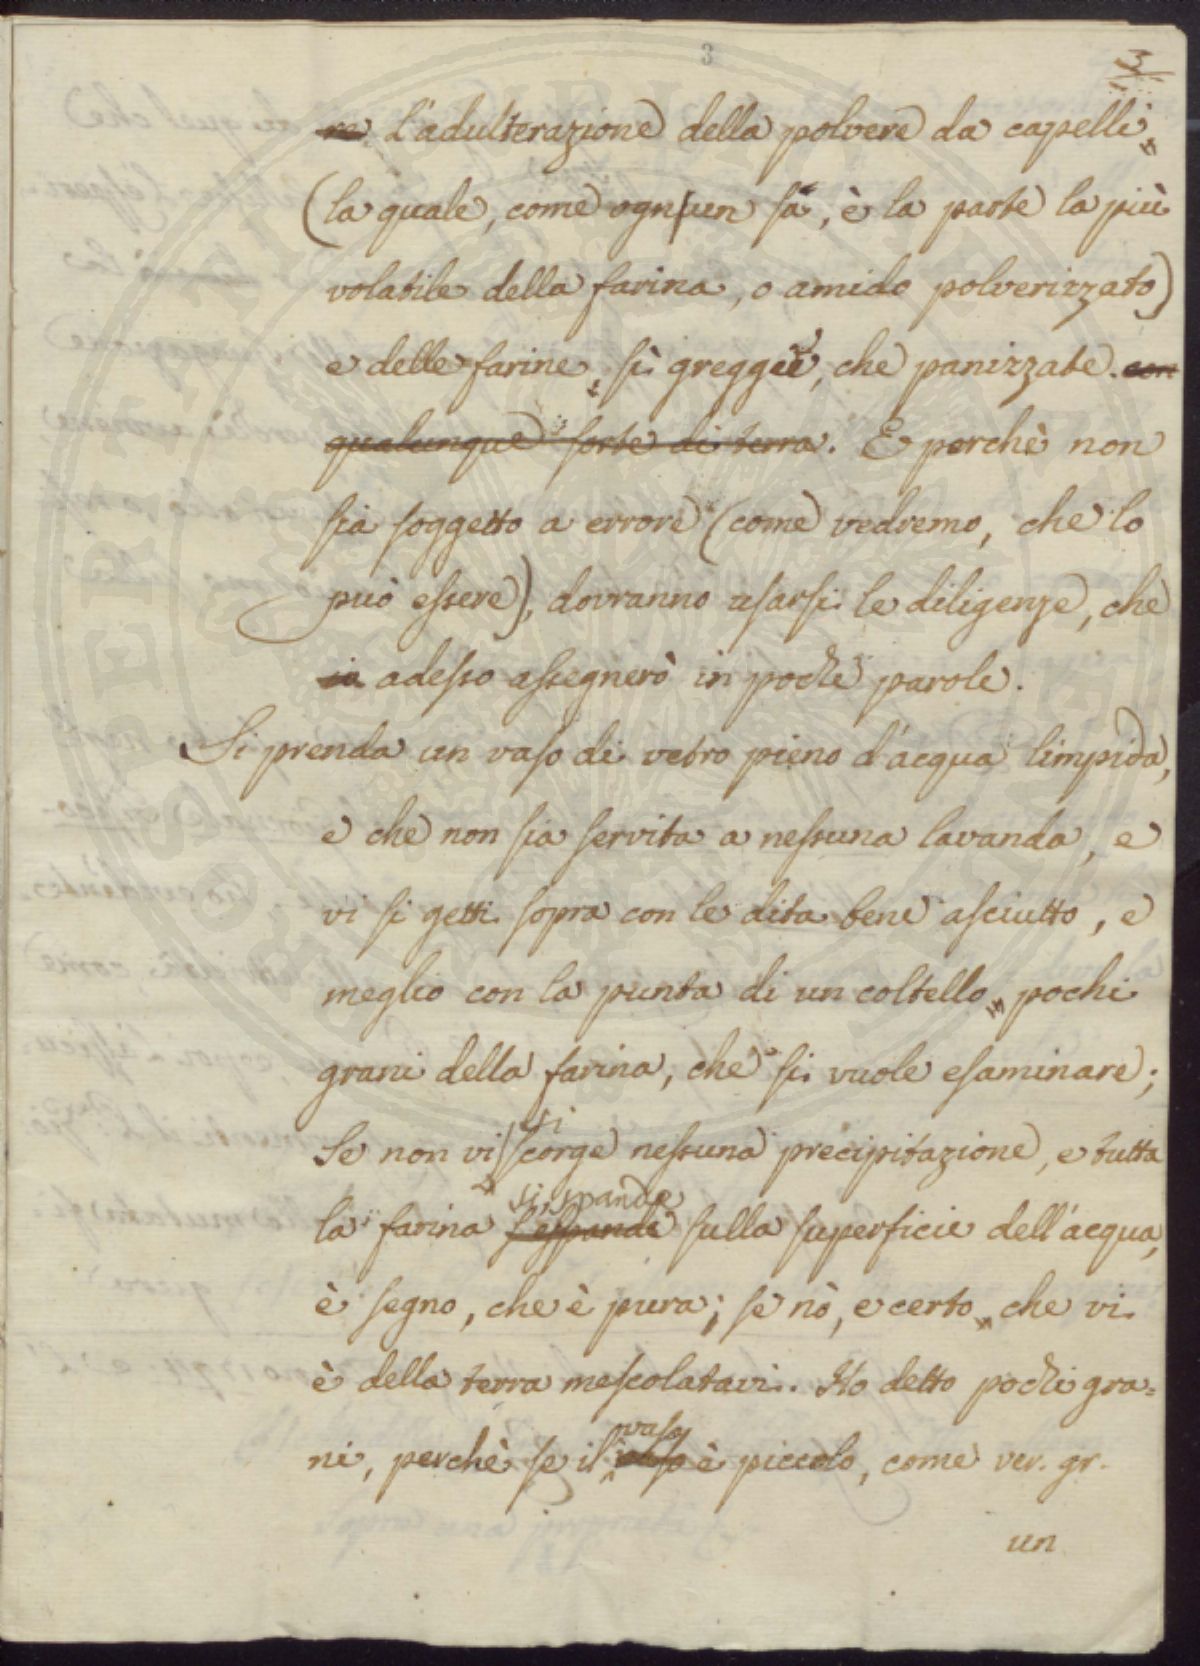 3
3
re. L'adulterazione della polvere da capelli,
(la quale, come ogn'un sà, è la parte la più
volatile della farina, o amido polverizzato)
e delle farine, sì greggie, che panizzate. con
qualunque sorte di terra. E perchè non
sia soggetto a errore (come vedremo, che lo
può essere), dovranno usarsi le diligenze, che
io adesso assegnerò in poche parole.
Si prenda un vaso di vetro pieno d'acqua limpida,
e che non sia servita a nessuna lavanda, e
vi si getti sopra con le dita bene asciutto, e
meglio con la punta di un coltello, pochi
grani della farina, che si vuole esaminare;
Se non vi si scorge nessuna precipitazione, e tutta
si spande
la farina s'espande sulla superficie dell'acqua,
è segno, che è pura; se nò, e certo, che vi
è della terra mescolatavi. Ho detto pochi gra=
ni, perchè se il vaso è piccolo, come ver. gr.
un